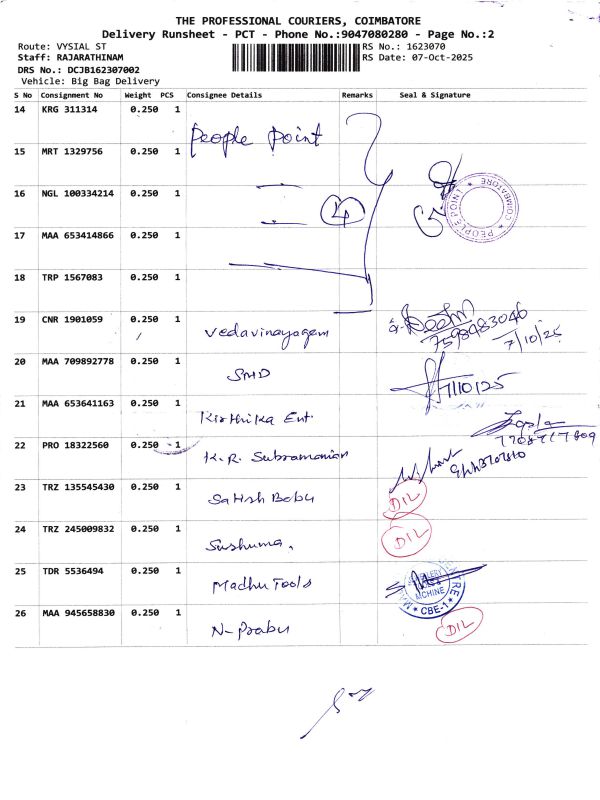 THE PROFESSIONAL COURIERS, COIMBATORE
Delivery Runsheet - PCT - Phone No.:9047080280 - Page No.:2
Route: VYSIAL ST
RS No.: 1623070
Staff: RAJARATHINAM
RS Date: 07-Oct-2025
DRS No.: DCJB162307002
Vehicle: Big Bag Delivery
S No Consignment No Weight PCS Consignee Details Remarks Seal & Signature
14 KRG 311314 0.250 1 People Point
15 MRT 1329756 0.250 1
16 NGL 100334214 0.250 1 4
PEOPLE POINT * COIMBATORE *
17 MAA 653414866 0.250 1
18 TRP 1567083 0.250 1
19 CNR 1901059 0.250 1 Vedavinayagam 7598983046 7/10/25
20 MAA 709892778 0.250 1 SMD 7/10/25
21 MAA 653641163 0.250 1 Kirthika Ent.
22 PRO 18322560 0.250 1 K.R. Subramanian
23 TRZ 135545430 0.250 1 Satish Babu DIL
24 TRZ 245009832 0.250 1 Sushuma. DIL
25 TDR 5536494 0.250 1 Madhu Tools CBE-1
26 MAA 945658830 0.250 1 N-Prabu DIL